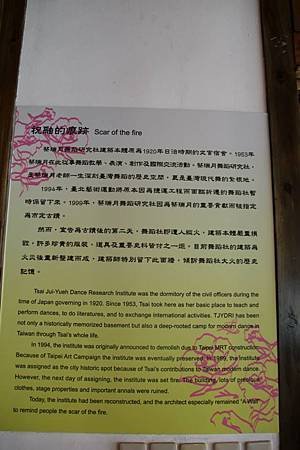 祝融的痕跡 Scar of the fire
蔡瑞月舞蹈研究社建築本體原為1920年日治時期的文官宿舍。1953年
蔡瑞月在此從事舞蹈教學、表演、創作及國際交流活動。蔡瑞月舞蹈研究社,
是蔡瑞月老師一生深刻臺灣舞蹈的歷史空間,更是臺灣現代舞的紮根地。
1994年,臺北藝術運動將原本因為捷運工程而面臨拆遷的舞蹈社暫
時保留下來。1999年,蔡瑞月舞蹈研究社因為蔡瑞月的重要貢獻而被指定
為市定古蹟。
然而,宣告為古蹟後的第二天,舞蹈社即遭人縱火,建築本體嚴重損
毀,許多珍貴的服裝、道具及重要史料皆付之一炬。目前舞蹈社的建築為
火災後重新整建而成,建築師特別留下此面牆,傾訴舞蹈社大火的歷史
記憶。
Tsai Jui-Yueh Dance Research Institute was the dormitory of the civil officers during the
time of Japan governing in 1920. Since 1953, Tsai took here as her basic place to teach and
perform dances, to do literatures, and to exchange international activities. TJYDRI has been
not only a historically memorized basement but also a deep-rooted camp for modern dance in
Taiwan through Tsai's whole life.
In 1994, the institute was originally announced to demolish due to Taipei MRT construction.
Because of Taipei Art Campaign the institute was eventually preserved. In 1999, the institute
was assigned as the city historic spot because of Tsai's contributions to Taiwan modern dance.
However, the next day of assigning, the institute was set fire. The building, lots of precious
clothes, stage properties and important annals were ruined.
Today, the institute had been reconstructed, and the architect especially remained "A Wall"
to remind people the scar of the fire.